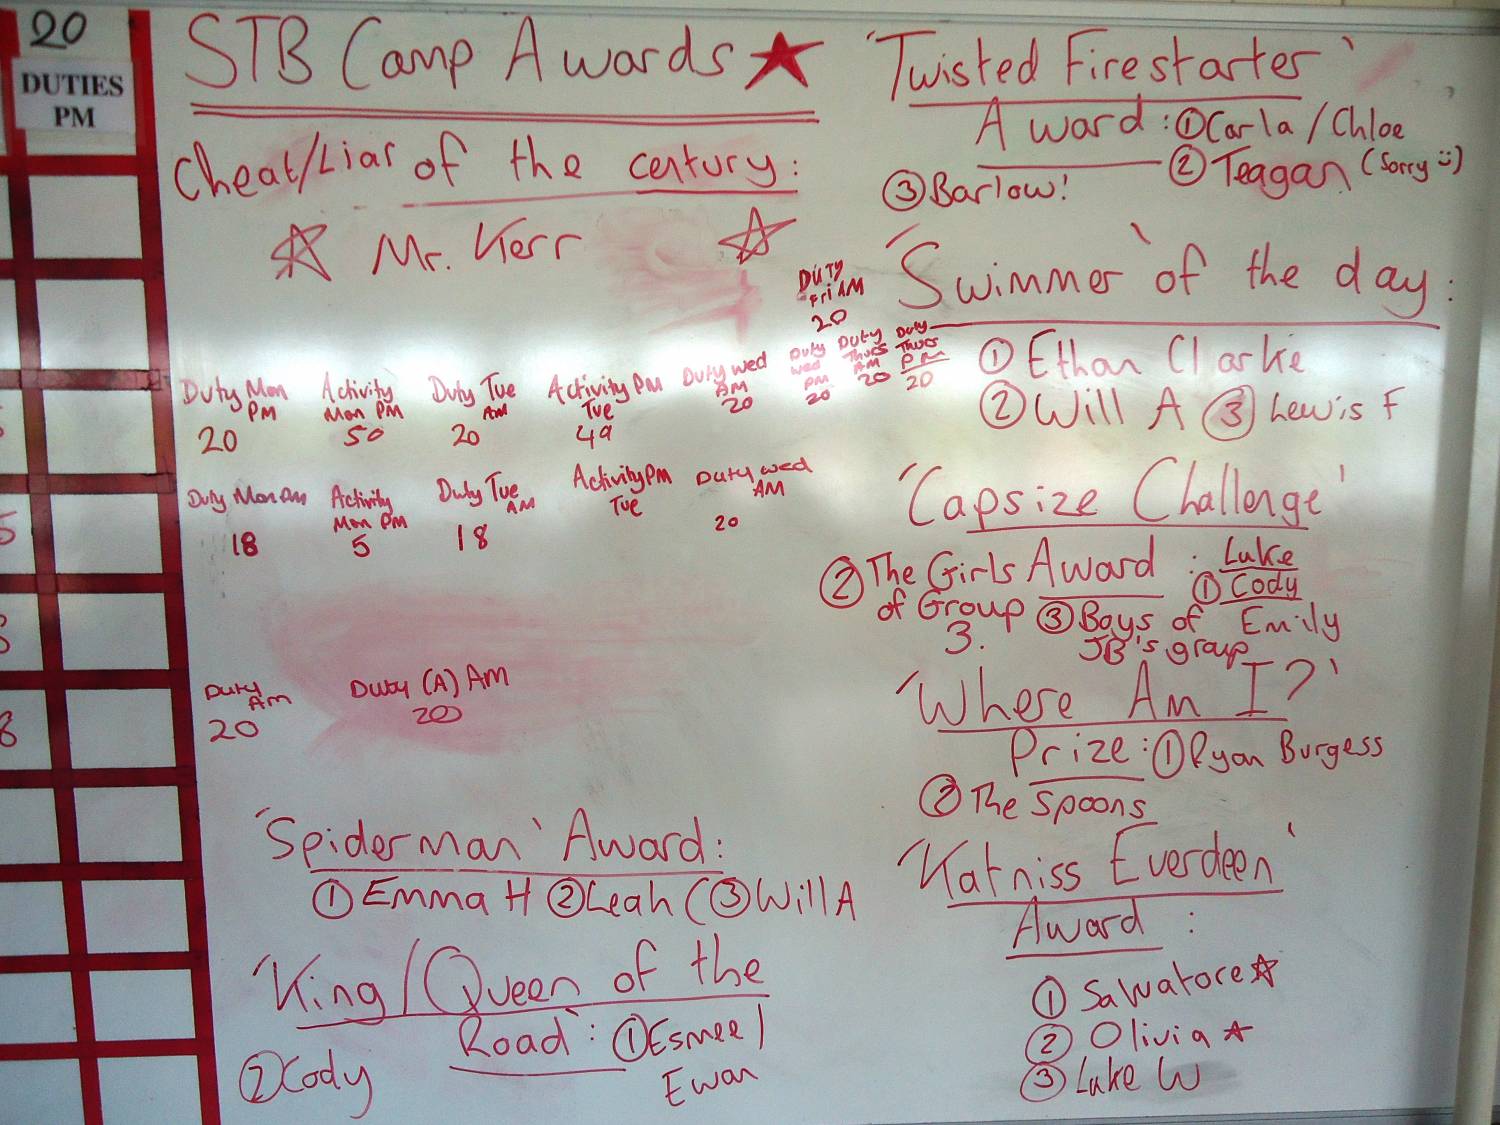 20
DUTIES
PM
STB Camp Awards
Cheat/Liar of the century:
Mr. Kerr
DUTY
Fri AM
20
Duty Mon
PM
20
Activity
Mon PM
50
Duty Tue
AM
20
Activity PM
Tue
49
Duty wed
AM
20
Duty
wed
PM
20
Duty
Thurs
AM
20
Duty
Thurs
PM
20
Duty Mon PM
18
Activity
Mon PM
5
Duty Tue
AM
18
Activity PM
Tue
Duty wed
AM
20
Duty
Am
20
Duty (A) AM
200
'Spiderman' Award:
① Emma H ② Leah C ③ Will A
'King/Queen of the
Road': ① Esmee /
Ewan
② Cody
'Twisted Firestarter'
Award: ① Carla / Chloe
② Teagan (Sorry :))
③ Barlow!
'Swimmer' of the day:
① Ethan Clarke
② Will A ③ Lewis F
'Capsize Challenge'
Award: Luke
① Cody
Emily
② The Girls
of Group
3.
③ Boys of
JB's group
'Where Am I?'
Prize: ① Ryan Burgess
② The Spoons
'Katniss Everdeen'
Award:
① Salvatore
② Olivia
③ Luke W
5
8